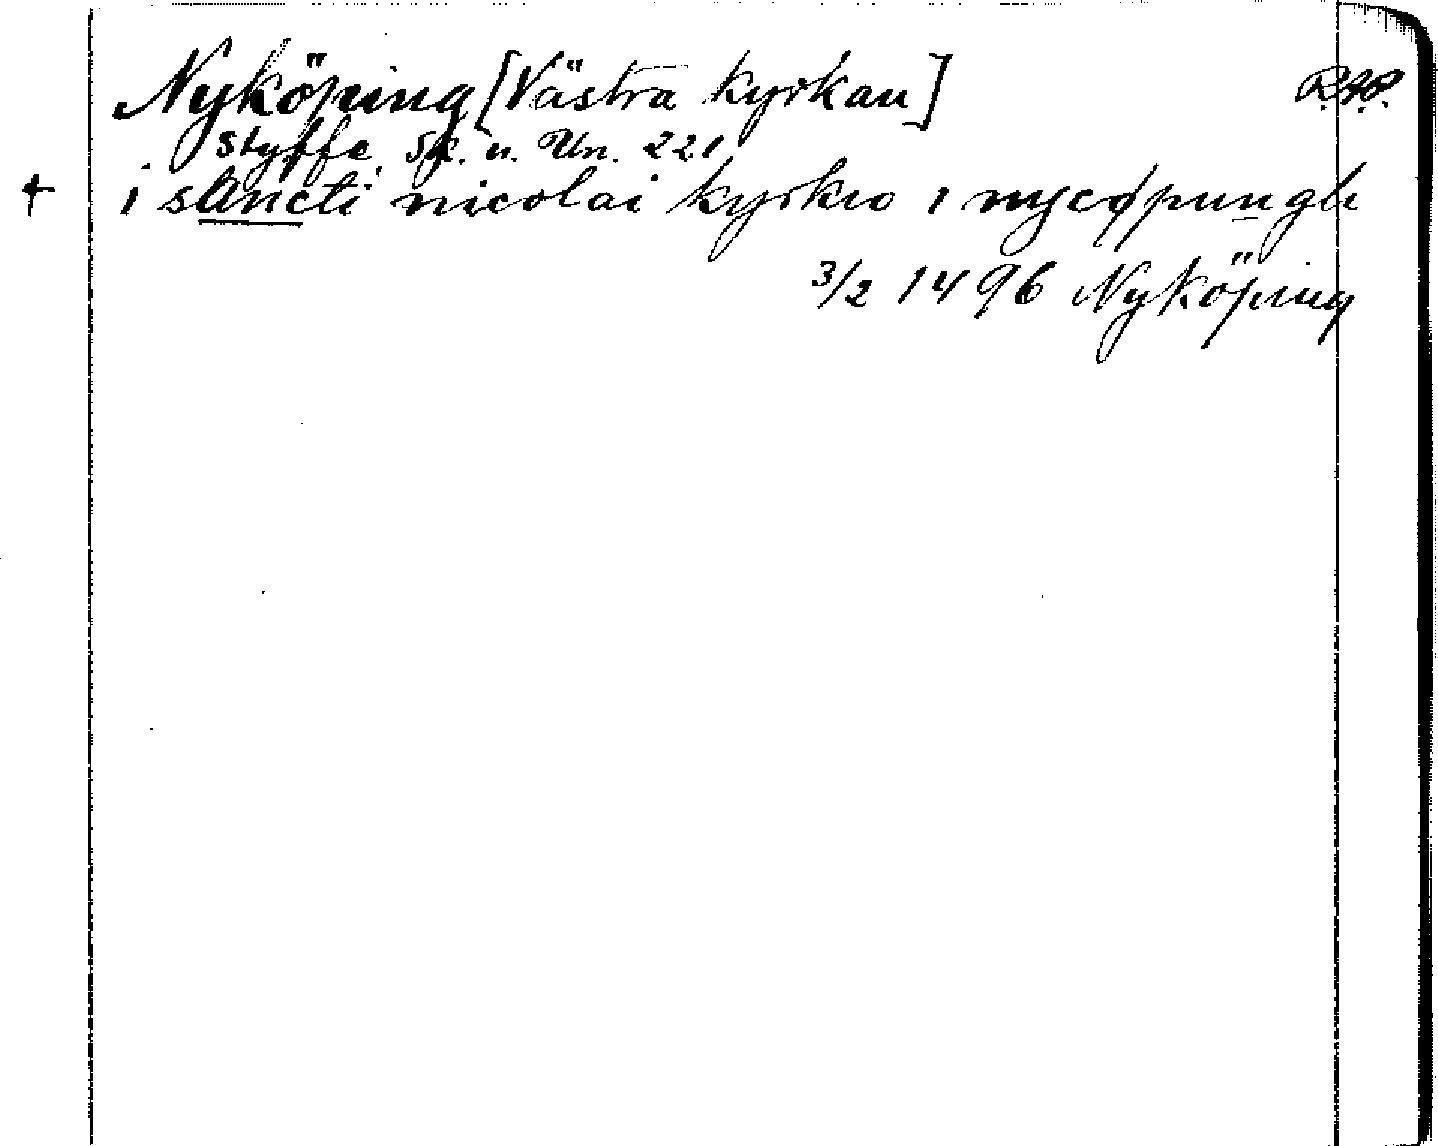 Nyköping [Västra kyrkan] RAP.
Styffe, Sk. u. Un. 221
+ i sancti nicolai kyrkio i nycøpungh
3/2 1496 Nyköping